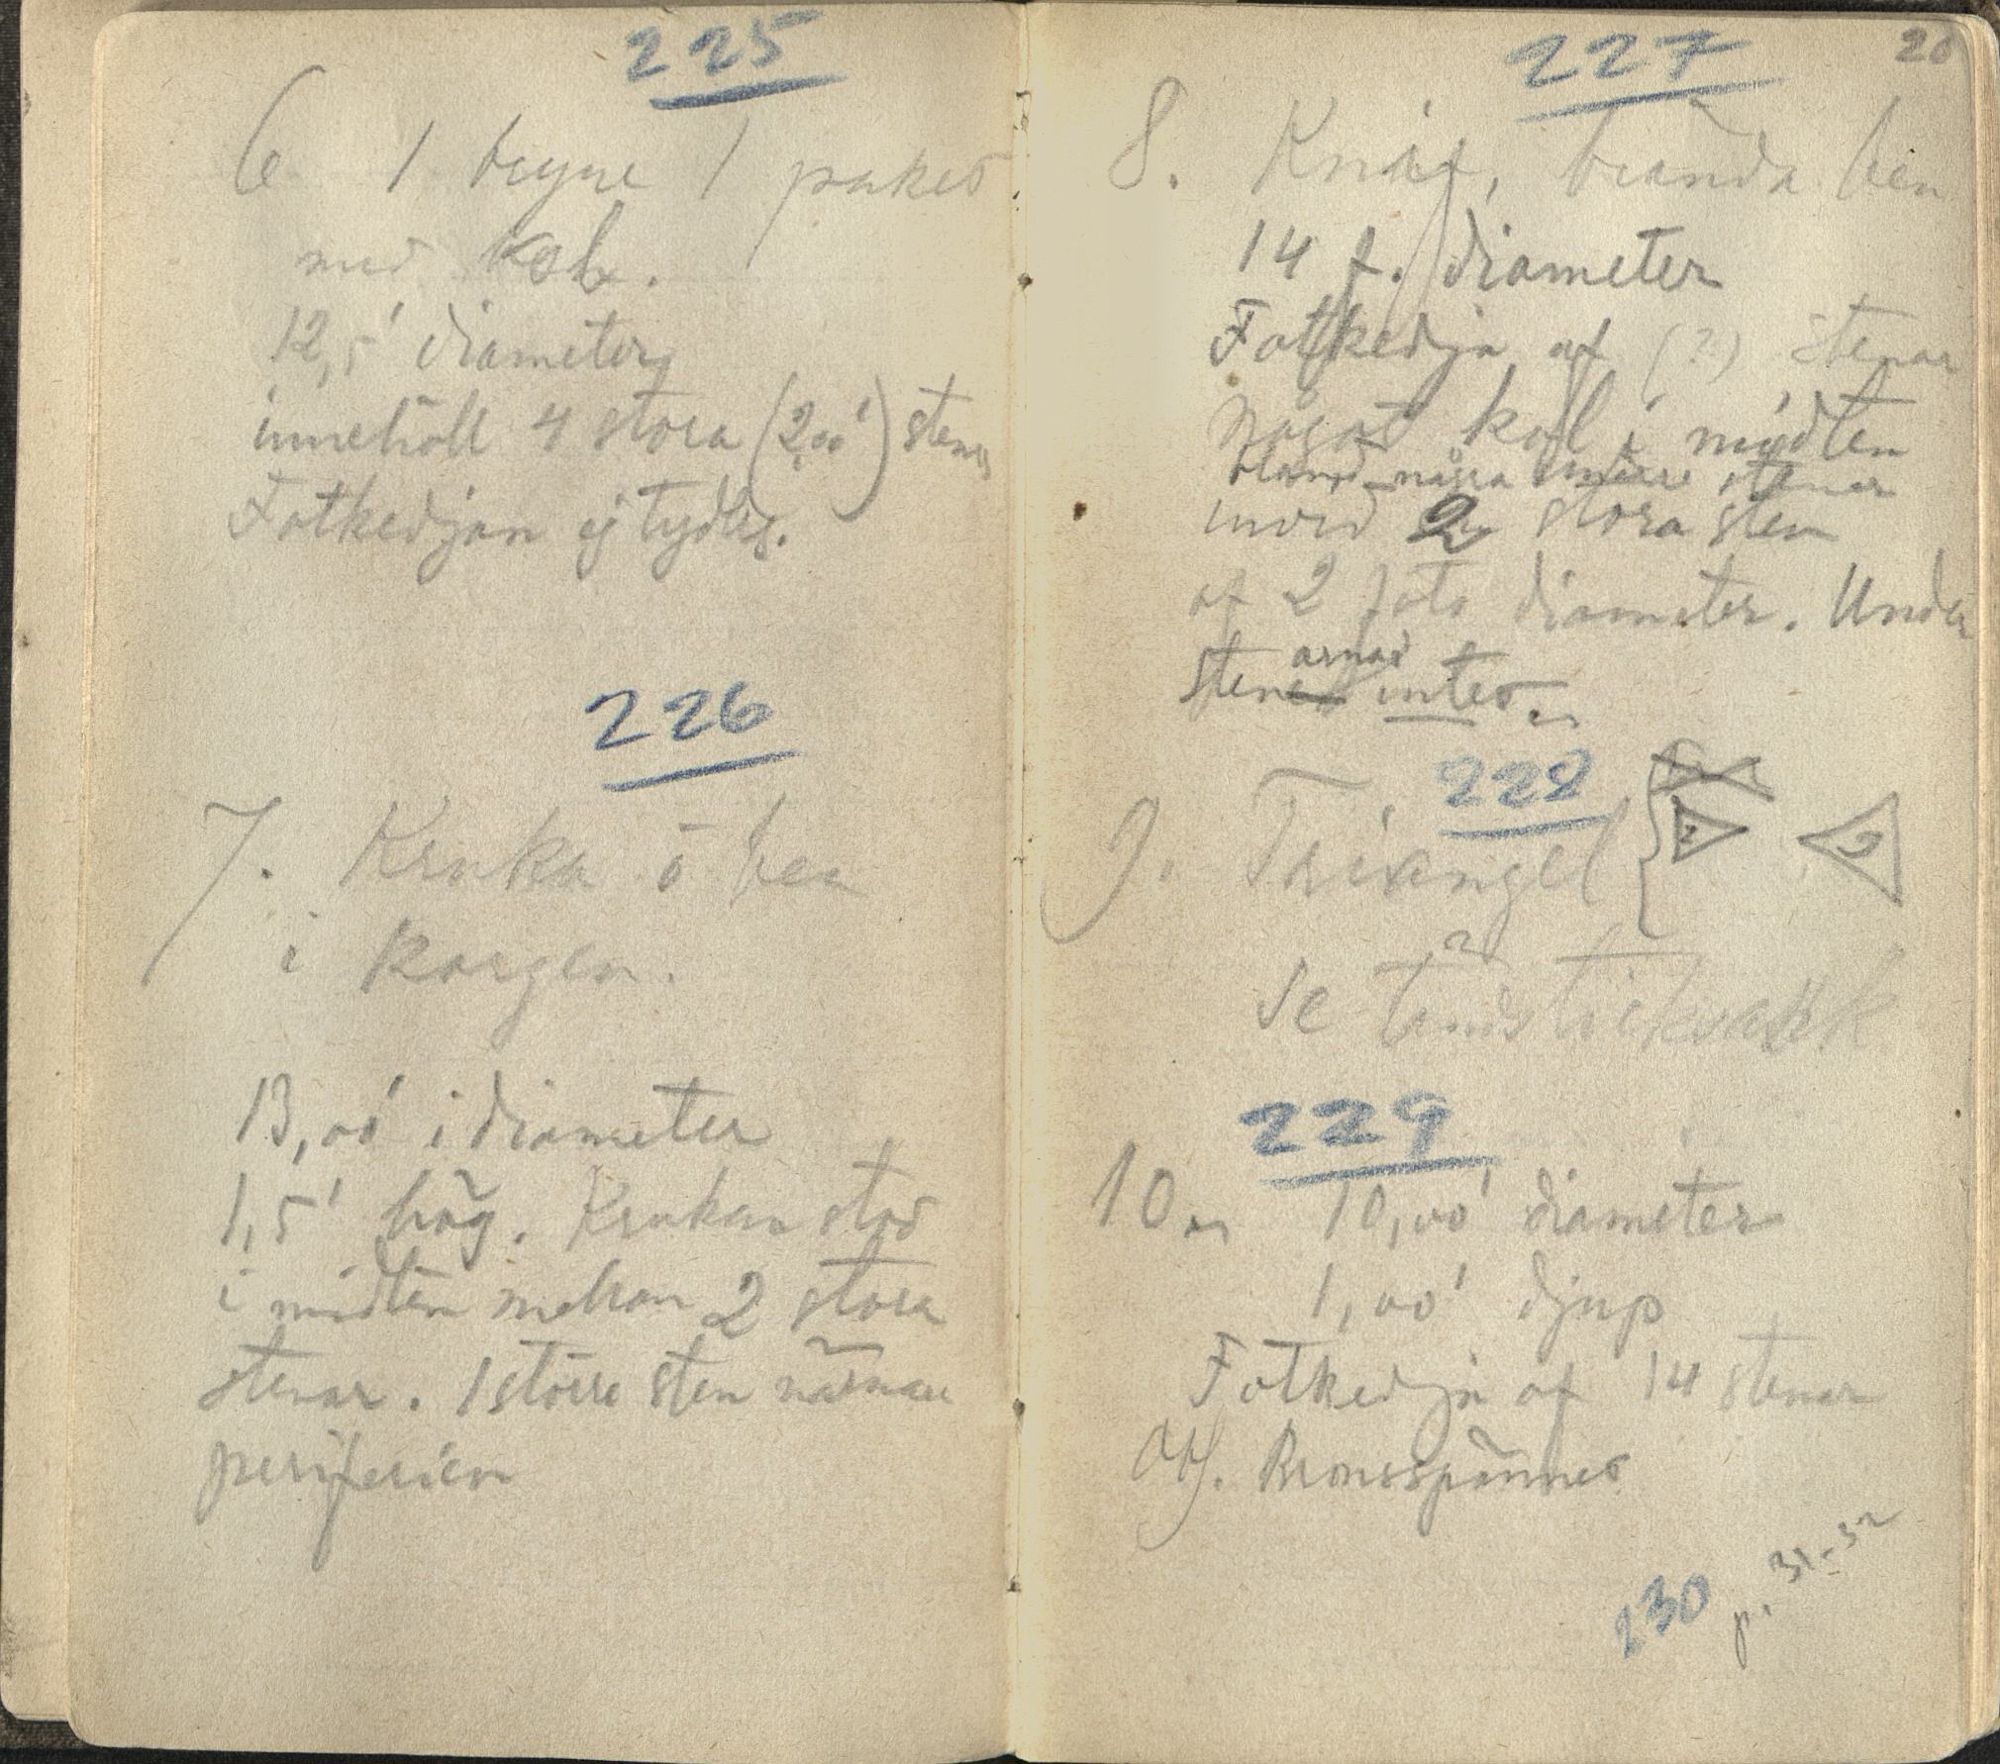 225
6 1 bryne 1 paket
med kol.
12,5' diameter
innehöll 4 stora (2,00') stenar
Fotkedjan ej tydlig.
226
7. Kruka o ben
i korgen.
13,00' i diameter
1,5' hög. Krukan stod
i midten mellan 2 stora
stenar. 1 större sten närmare
periferien
20
227
8. Knif, brända ben
14 f. diameter
Fotkedja af (?) stenar
Något kol i midten
bland några mindre stenar
invid 2 stora sten
af 2 fots diameter. Under
stenarna intet.
228
9. Triangel
Se
229
10. 10,00' diameter
1,00' djup
Fotkedja af 14 stenar
Bronsspännet
230 p. 31-32